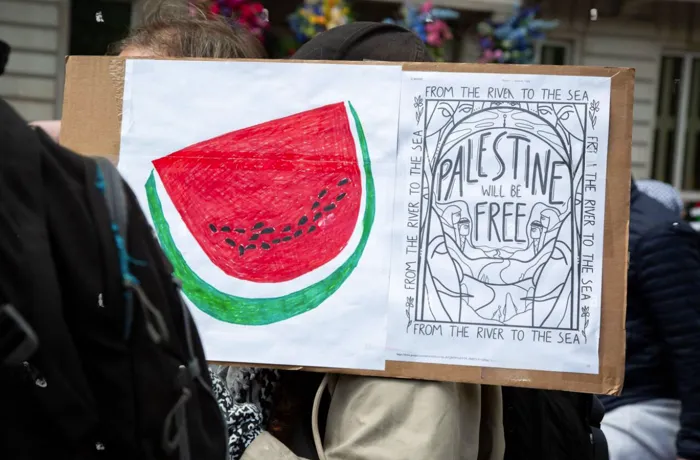 FROM THE RIVER TO THE SEA
FROM THE RIVER TO THE SEA
PALESTINE
WILL BE
FREE
FROM THE RIVER TO THE SEA
FROM THE RIVER TO THE SEA